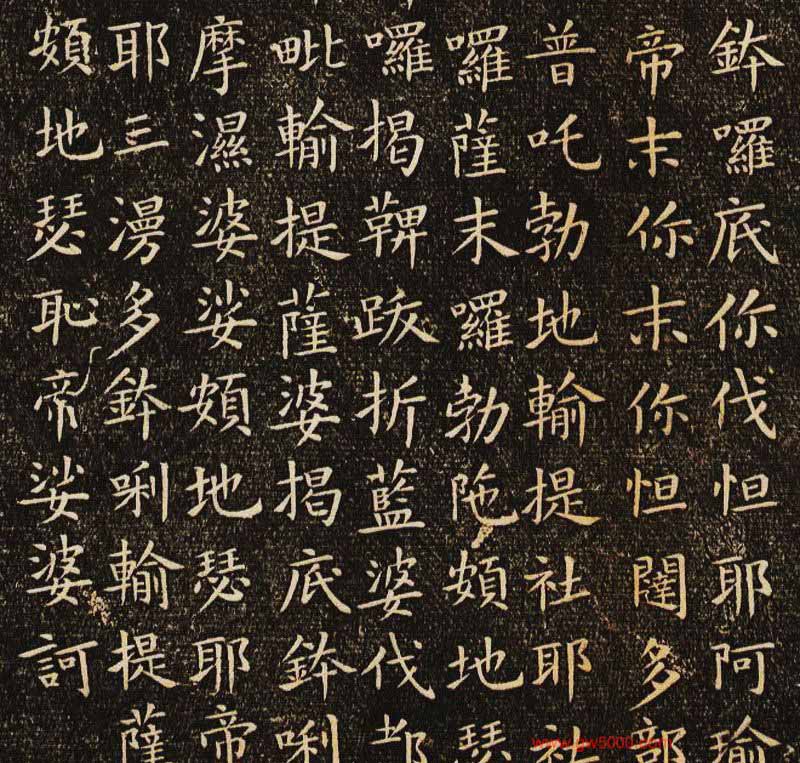 鉢囉底你伐怛耶阿瑜
帝末你末你怛闥多部
普吒勃地輸提社耶社
囉薩末囉勃陁頞地瑟
囉揭鞞跋折藍婆伐都
毗輸提薩婆揭底鉢唎
摩濕婆娑頞地瑟耶帝
耶三漫多鉢唎輸提薩
頞地瑟恥帝娑婆訶
www.gw5000.com